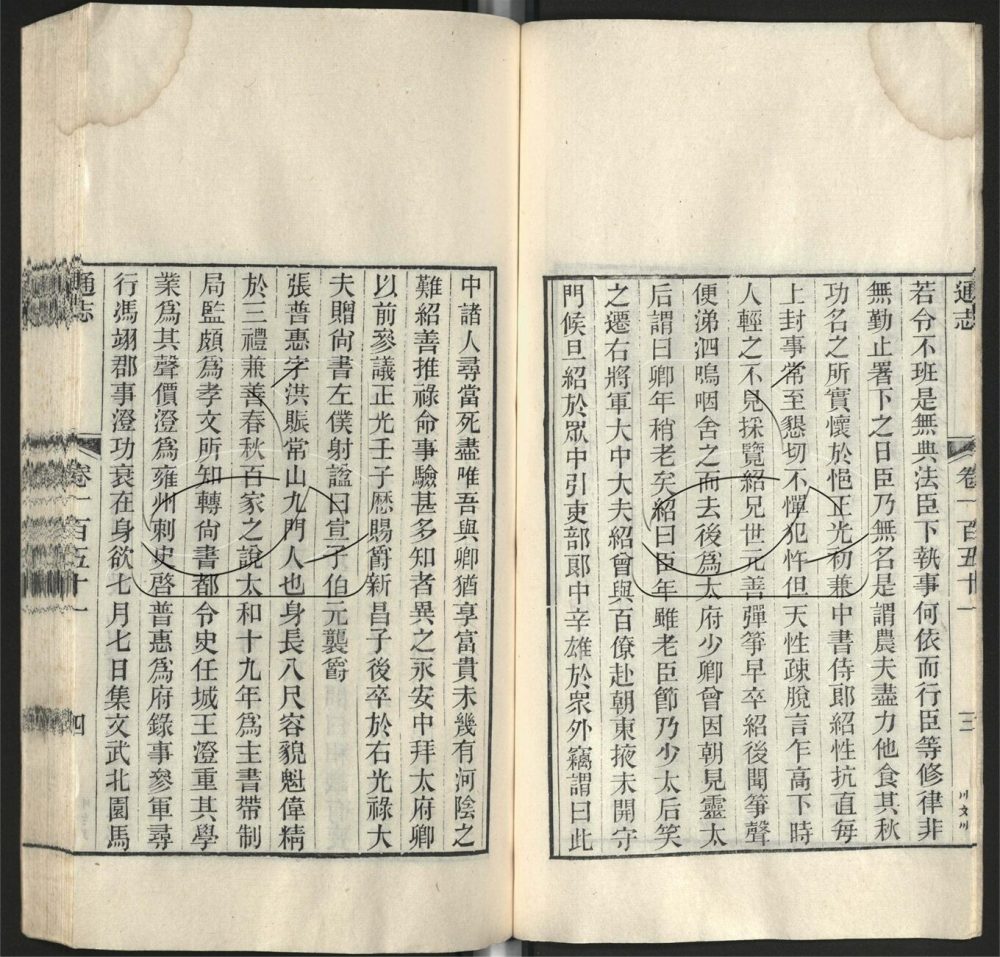 通志
卷一百五十一
三
若令不班是無典法臣下執事何依而行臣等修律非
無勤止署下之日臣乃無名是謂農夫盡力他食其秋
功名之所實懷於悒正光初兼中書侍郎紹性抗直每
上封事常至懇切不憚犯忤但天性疎脫言乍高下時
人輕之不見採覽紹兄世元善彈箏早卒紹後聞箏聲
便涕泗嗚咽舍之而去後爲太府少卿曾因朝見靈太
后謂曰卿年稍老矣紹曰臣年雖老臣節乃少太后笑
之遷右將軍大中大夫紹曾與百僚赴朝東掖未開守
門候旦紹於眾中引吏部郞中辛雄於衆外竊謂曰此
中諸人尋當死盡唯吾與卿猶享富貴未幾有河陰之
難紹善推祿命事驗甚多知者異之永安中拜太府卿
以前參議正光壬子歴賜爵新昌子後卒於右光祿大
夫贈尙書左僕射謚曰宣子伯元襲爵
張普惠字洪賑常山九門人也身長八尺容貌魁偉精
於三禮兼善春秋百家之說太和十九年爲主書帶制
局監頗爲孝文所知轉尙書都令史任城王澄重其學
業爲其聲價澄爲雍州刺史啓普惠爲府錄事參軍尋
行馮翊郡事澄功衰在身欲七月七日集文武北園馬
通志
卷一百五十一
四